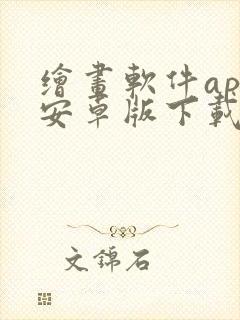 繪畫軟件ap
安卓版下載
文錦石